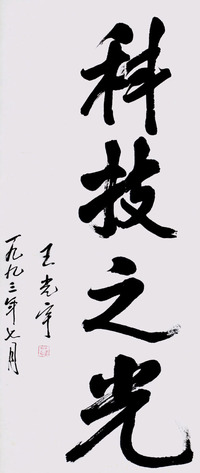 科技之光
王光宇
一九九三年七月